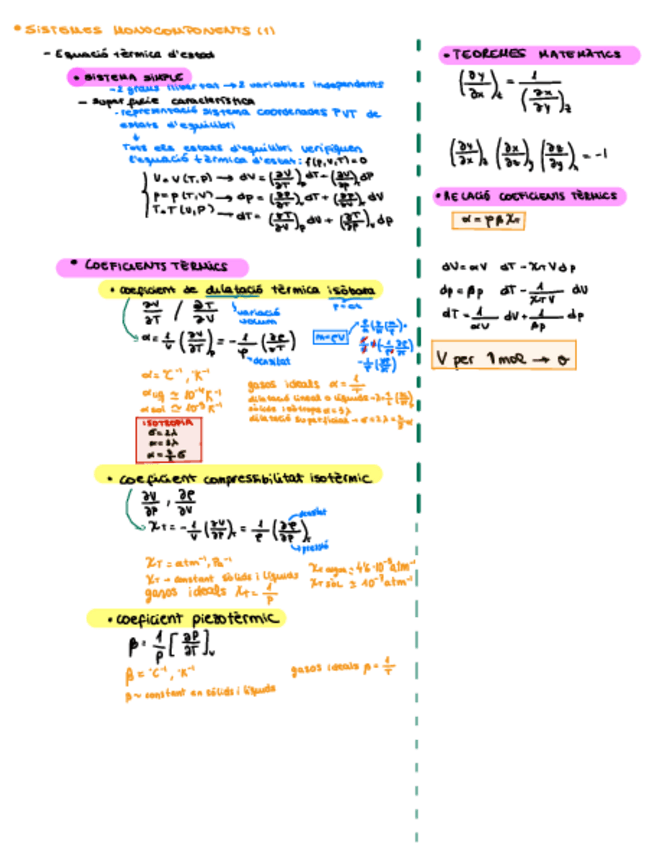 • SISTEMES MONOCOMPONENTS (1)
- Equació tèrmica d'estat
• SISTEMA SIMPLE
- 2 graus llibertat → 2 variables independents
- superfície característica
- representació sistema coordenades PVT de
estats d'equilibri
↓
Tots els estats d'equilibri verifiquen
l'equació tèrmica d'estat: f(p,v,T) = 0
V = V(T,P) → dV = (∂V/∂T)p dT + (∂V/∂P)T dP
P = P(T,V) → dp = (∂P/∂T)v dT + (∂P/∂V)T dV
T = T(V,P) → dT = (∂T/∂V)p dV + (∂T/∂P)v dp
• COEFICIENTS TÈRMICS
• coeficient de dilatació tèrmica isòbara
p = ct
∂V/∂T / ∂T/∂V
variació
volum
α = 1/V (∂V/∂T)p = -1/ρ (∂ρ/∂T)
densitat
m = ρV
α = °C⁻¹, °K⁻¹
α líq ≃ 10⁻⁴ K⁻¹
α sòl ≃ 10⁻⁵ K⁻¹
gasos ideals α = 1/T
sòlids isòtrops α = 3λ
dilatació superficial → σ = 2λ = 2/3 α
ISOTROPIA
σ = 2λ
α = 3λ
α = 3/2 σ
• coeficient compressibilitat isotèrmic
∂V/∂P , ∂P/∂V
χT = -1/V (∂V/∂P)T = 1/ρ (∂ρ/∂P)T
densitat
pressió
χT = atm⁻¹, Pa⁻¹
χT → constant sòlids i líquids
gasos ideals χT = 1/P
χT aigua = 4'6·10⁻⁵ atm⁻¹
χT sòl ≃ 10⁻⁷ atm⁻¹
• coeficient piezotèrmic
β = 1/P [∂P/∂T]v
β = °C⁻¹, °K⁻¹
gasos ideals β = 1/T
β ~ constant en sòlids i líquids
• TEOREMES MATEMÀTICS
(∂y/∂x)z = 1/(∂x/∂y)z
(∂y/∂x)z (∂x/∂z)y (∂z/∂y)x = -1
• RELACIÓ COEFICIENTS TÈRMICS
α = pβχT
dV = αV dT - χTVdp
dp = βp dT - 1/χTV dV
dT = 1/αV dV + 1/βp dp
V per 1 mol → v